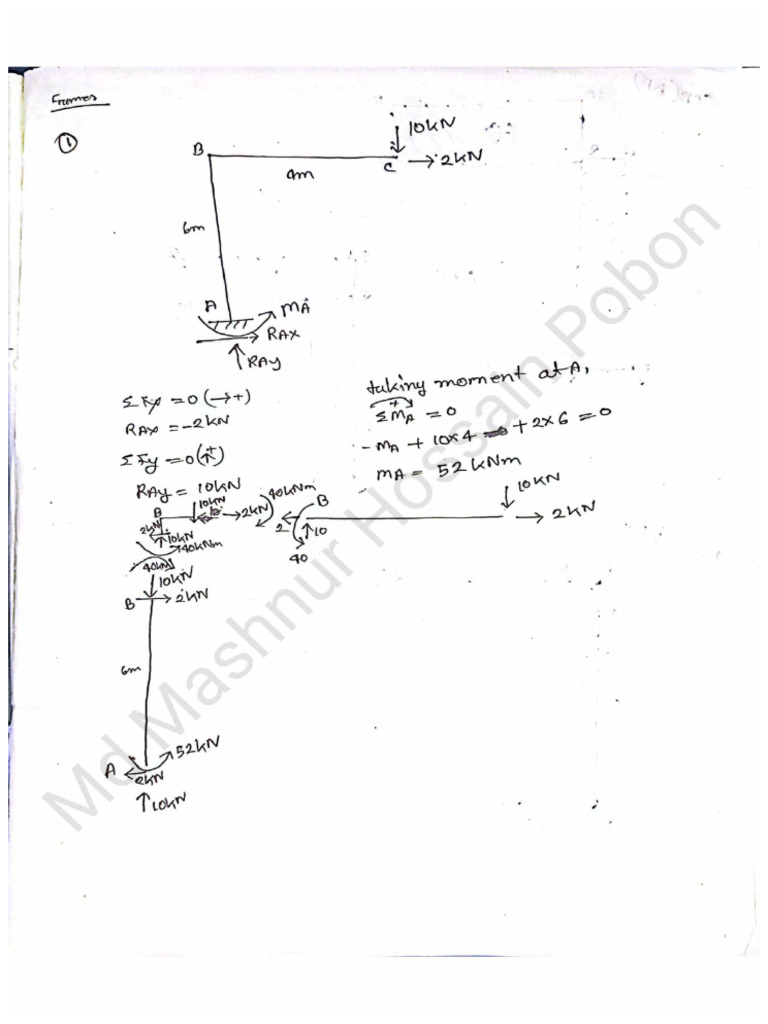 Frames
①
10kN
B
C
2kN
4m
6m
A
MA
RAX
RAy
ΣFx = 0 (→+)
RAX = -2kN
ΣFy = 0 (↑+)
RAy = 10kN
taking moment at A,
ΣMA = 0
-MA + 10x4 + 2x6 = 0
MA = 52 kNm
B
10kN
2kN
40kNm
2kN
10kN
40kNm
B
2
10
40
10kN
2kN
40kNm
10kN
B
2kN
6m
A
52kN
2kN
10kN
Md Mashnur Hossain Pobon